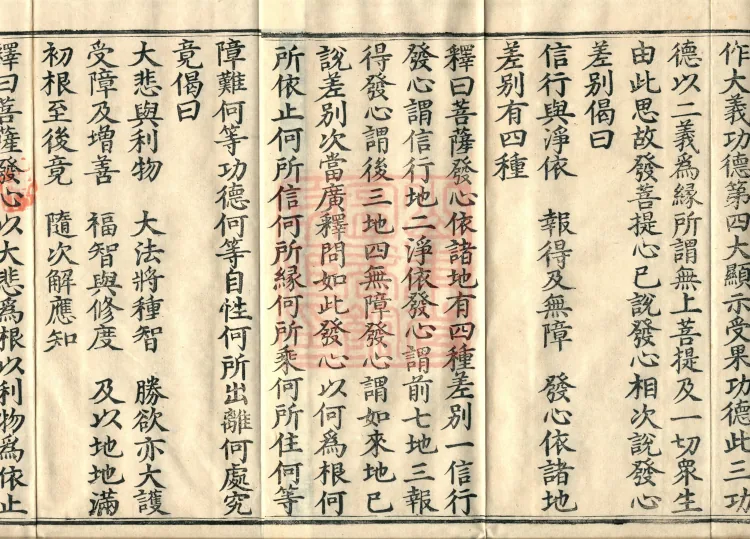 作大義功德第四大顯示受果功德此三功
德以二義爲緣所謂無上菩提及一切眾生
由此思故發菩提心已說發心相次說發心
差別偈曰
信行與淨依　報得及無障　發心依諸地
差別有四種
釋曰菩薩發心依諸地有四種差別一信行
發心謂信行地二淨依發心謂前七地三報
得發心謂後三地四無障發心謂如來地已
說差別次當廣釋問如此發心以何爲根何
所依止何所信何所緣何所乘何所住何等
障難何等功德何等自性何所出離何處究
竟偈曰
大悲與利物　大法將種智　勝欲亦大護
受障及增善　福智與修度　及以地地滿
初根至後竟　隨次解應知
釋曰菩薩發心以大悲爲根以利物爲依止